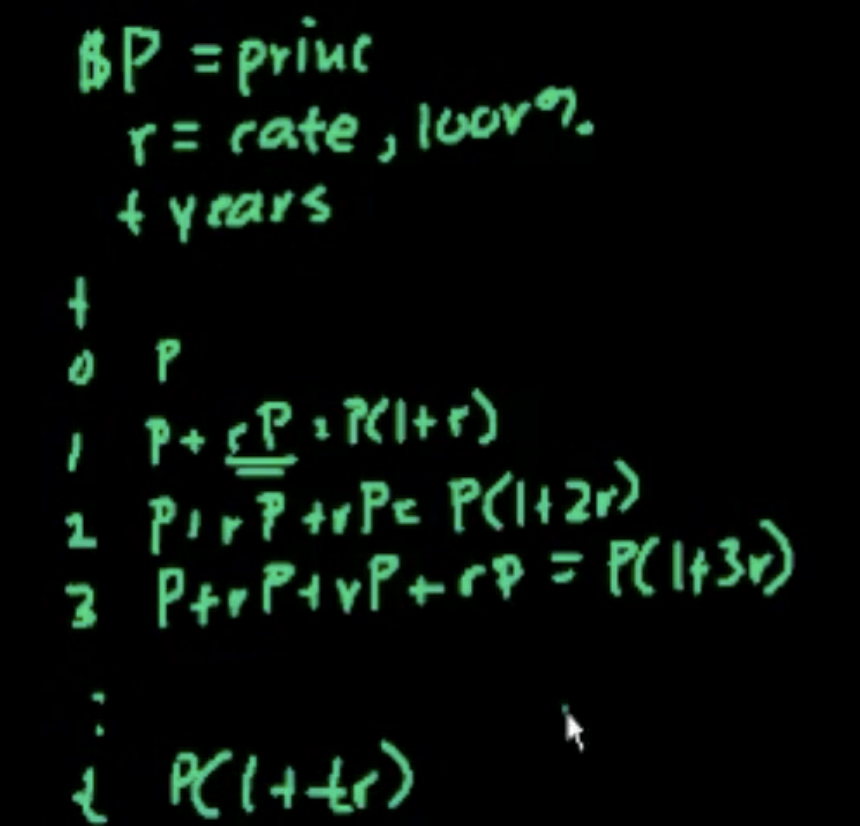 $P = princ
r = rate, 100r%.
t years
t
0 P
1 P + rP = P(1+r)
2 P + rP + rP = P(1+2r)
3 P + rP + rP + rP = P(1+3r)
:
t P(1+tr)